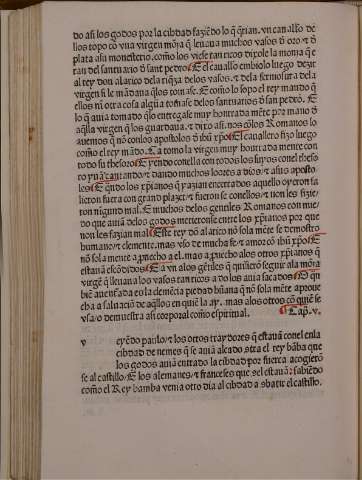 do asi los godos por la cibdad faziẽdo lo q̃ q̃rian. vn caua̾llo. de
llos topo cõ vna virgen mõja q̃ leuaua muchos vasos ð oro ⁊ ð
plata al monesterio. como los viese tan ricos dixole la monja que
ran del santuario ð sant pedro. E el cauallo embiolo luego dezir
al rey don alarico dela riq̃za delos vasos. ⁊ de la fermosura dela
virgen si le mãdaua q̃ los tomase. E como lo sopo el rey mando q̃
ellos nĩ otra cosa alguna tomase delos santuarios ð san pedro. E
lo q̃ auia tomado q̃lo entregase muy honrada mẽte por mano ð
aq̃lla virgen q̃ los guardaua. ⁊ dixo asi. nos cõlos Romanos lo
auemos q̃ nõ conlos apostolos ð ihũ xp̃o. E el cauallero fizo luego
como el rey mãdo. E a tomo la virgen muy honrada mente con
todo su thesoro. E yendo conella con todos los suyos conel theso
ro yuã cantando ⁊ dando muchos loores a dios ⁊ a sus aposto
les. E q̃ndo los xp̃ianos que yazian encerrados aquello oyeron sa
lieron fuera con grand plazer ⁊ fueron se conellos ⁊ non les fizie
ron ningund mal. E muchos delos gentiles Romanos con mie
do que auiã delos godos metieronse entre los xp̃ianos por que
non les fazian mal. Este rey do alarico nõ sola mẽte se demostro
humano ⁊ clemente. mas vso de mucha fe ⁊ amor cõ ihũ xp̃o. E
nõ sola mente a prouecho a el. mas aprouecho alos otros xp̃ianos q̃
estauã escõdidos. E a vn alos gẽtiles q̃ quisierõ seguir ala mõja
virgẽ q̃ leuaua los vasos tan ricos ⁊ a los auia sacados. O q̃n
bie auenturada es la clemẽcia piedad buãna q̃ nõ sola mẽte aproue
cha a saluaciõ de aq̃llos en quiẽ la ay. mas alos otros cõ quiẽ se
vsa. o demuestra asi corporal como espiritual. Cap̃. v.
v eyẽdo paulo ⁊ los otros traydores q̃ estauã conel enla
cibdad de nemes q̃ se auia alcado cõtra el rey bãba que
los godos auiã entrado la cibdad por fuerca acogierõ
se al castillo. E los alemanes ⁊ franceses que sel estauã: sabiẽdo
como el Rey bamba venia otro dia al cibdad a sbatir el castillo.